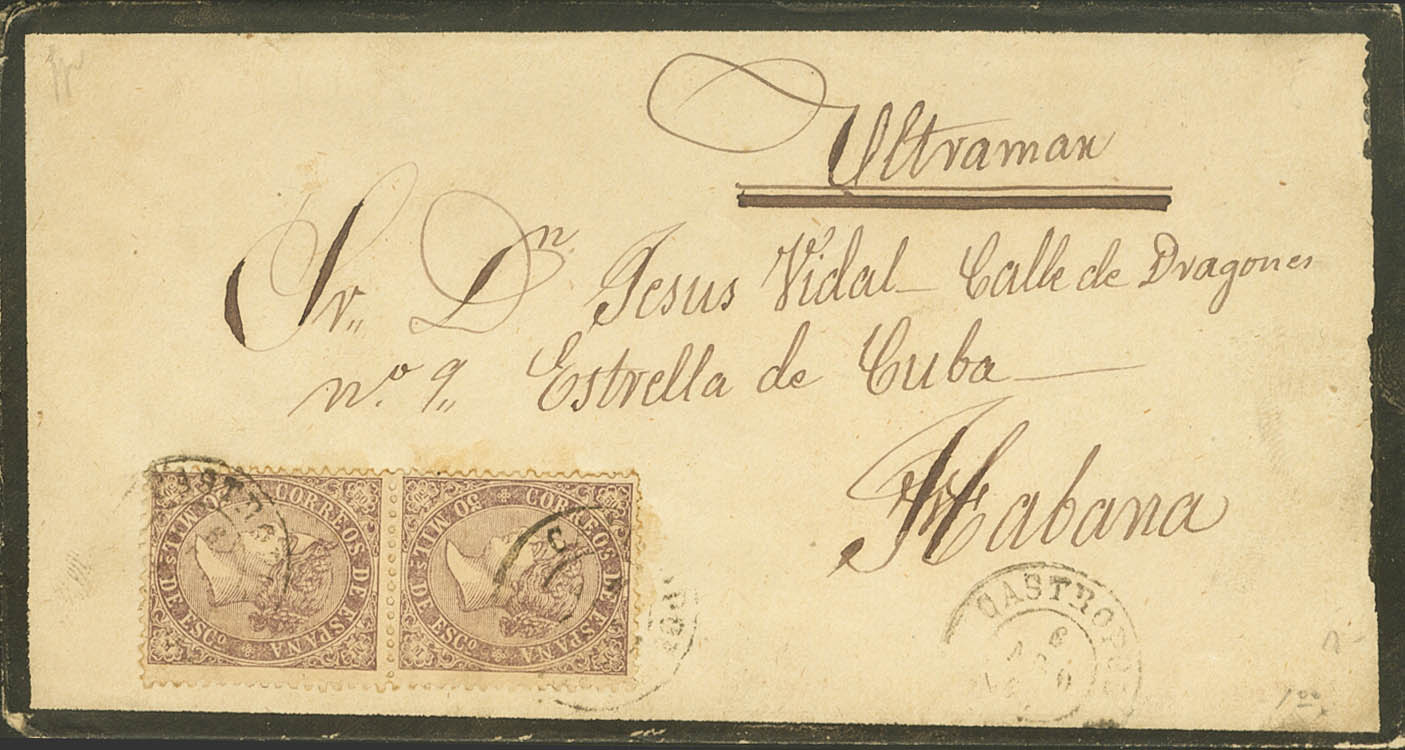 Ultramar
Sr. Dn. Jesus Vidal - Calle de Dragones
no. 9, Estrella de Cuba
Habana
CORREOS DE ESPAÑA
50 MILS DE ESCO
CORREOS DE ESPAÑA
50 MILS DE ESCO
CASTROPO
6